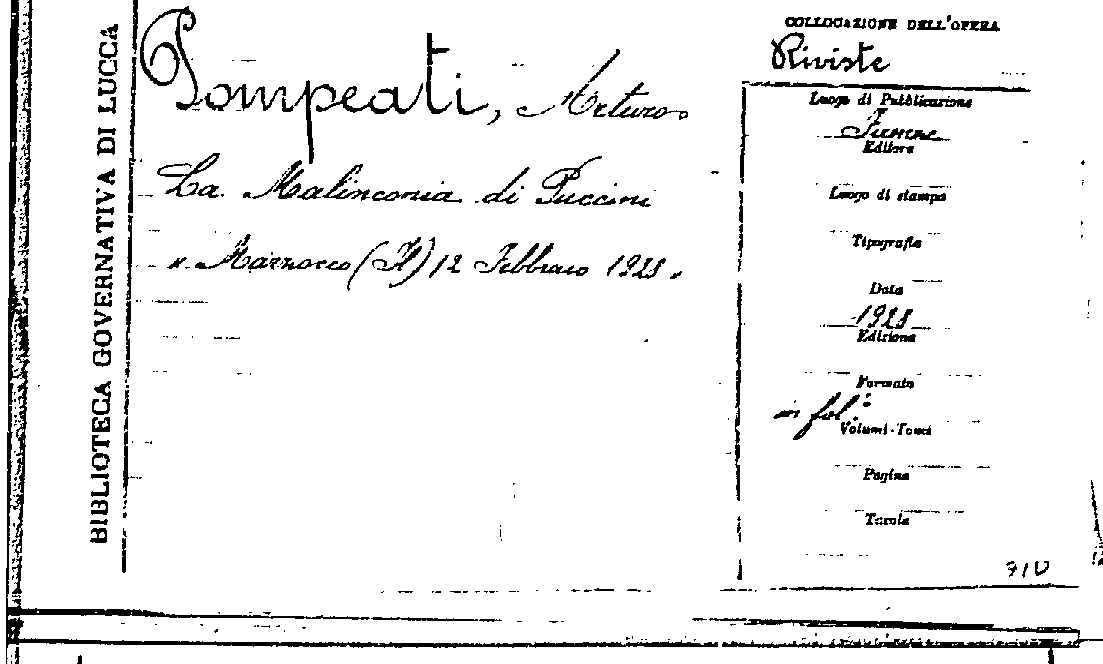 BIBLIOTECA GOVERNATIVA DI LUCCA
Pompeati, Arturo
La Malinconia di Puccini
"Marzocco (Il) 12 Febbraio 1928"
COLLOCAZIONE DELL'OPERA
Riviste
Luogo di Pubblicazione
Firenze
Editore
Luogo di stampa
Tipografia
Data
1928
Edizione
Formato
in fol:
Volumi-Tomi
Pagine
Tavole